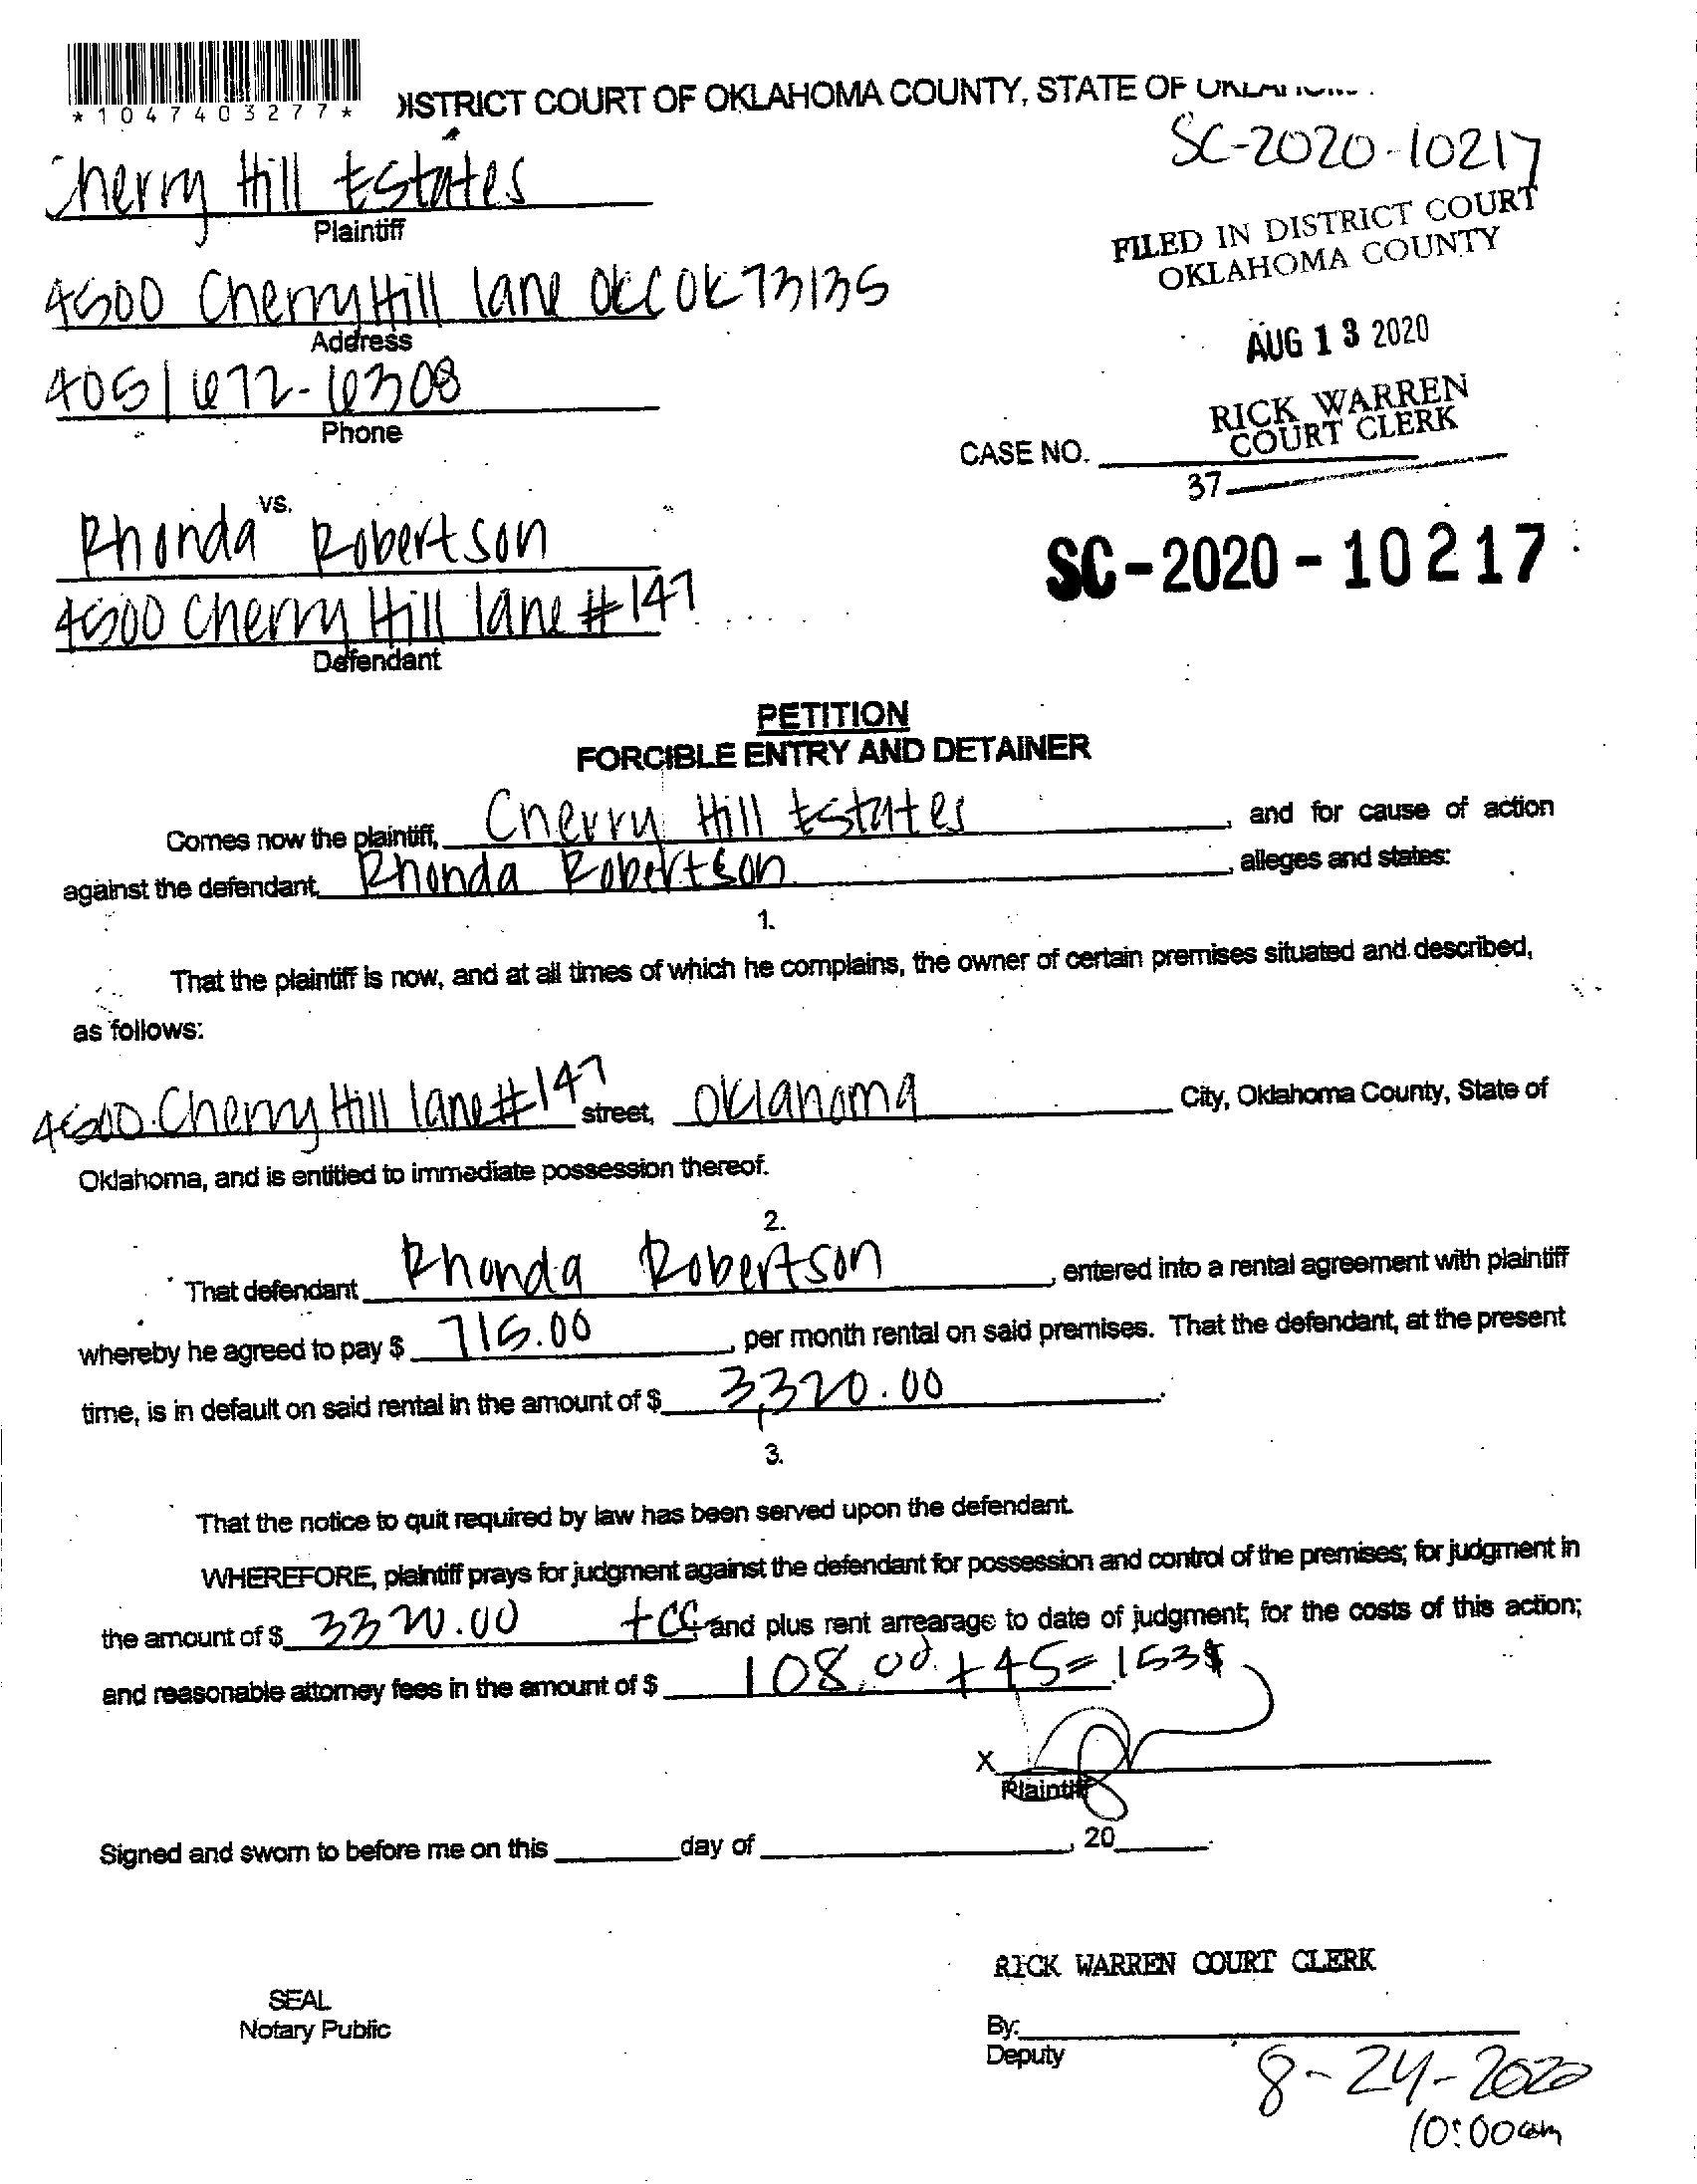 *1047403277*
DISTRICT COURT OF OKLAHOMA COUNTY, STATE OF
SC-2020-10217
Cherry Hill Estates
Plaintiff
FILED IN DISTRICT COURT
OKLAHOMA COUNTY
4500 Cherry Hill lane OKC OK 73135
Address
AUG 13 2020
405/672-6308
Phone
RICK WARREN
COURT CLERK
CASE NO.
37
vs.
Rhonda Robertson
SC-2020-10217
4500 Cherry Hill lane #147
Defendant
PETITION
FORCIBLE ENTRY AND DETAINER
Comes now the plaintiff, Cherry Hill Estates, and for cause of action
against the defendant, Rhonda Robertson, alleges and states:
1.
That the plaintiff is now, and at all times of which he complains, the owner of certain premises situated and described,
as follows:
4500 Cherry Hill lane #147 street, Oklahoma City, Oklahoma County, State of
Oklahoma, and is entitled to immediate possession thereof.
2.
That defendant Rhonda Robertson, entered into a rental agreement with plaintiff
whereby he agreed to pay $ 715.00, per month rental on said premises. That the defendant, at the present
time, is in default on said rental in the amount of $ 3,320.00.
3.
That the notice to quit required by law has been served upon the defendant.
WHEREFORE, plaintiff prays for judgment against the defendant for possession and control of the premises; for judgment in
the amount of $ 3320.00 +CC and plus rent arrearage to date of judgment; for the costs of this action;
and reasonable attorney fees in the amount of $ 108.00 + 45 = 153$.
X
Plaintiff
Signed and sworn to before me on this day of , 20 .
RICK WARREN COURT CLERK
SEAL
Notary Public
By:
Deputy
8-24-2020
10:00am